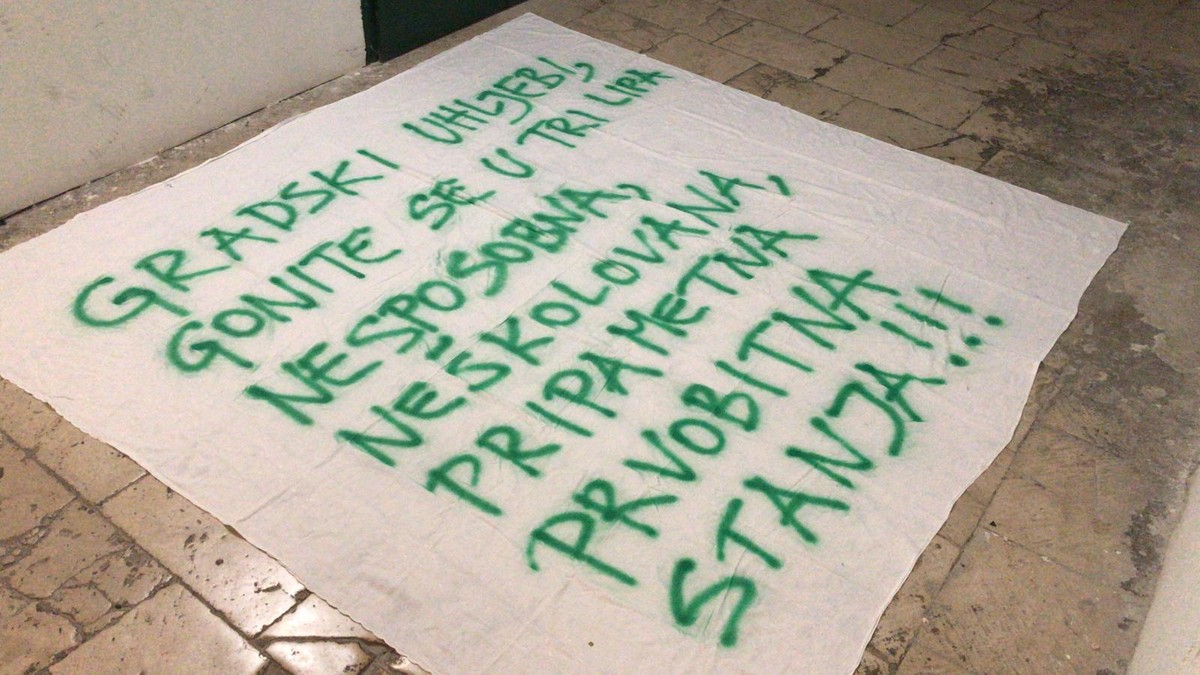 GRADSKI UHLJEBI,
GONITE SE U TRI LIPA
NESPOSOBNA,
NEŠKOLOVANA,
PRIPAMETNA
PRVOBITNA
STANJA!!!